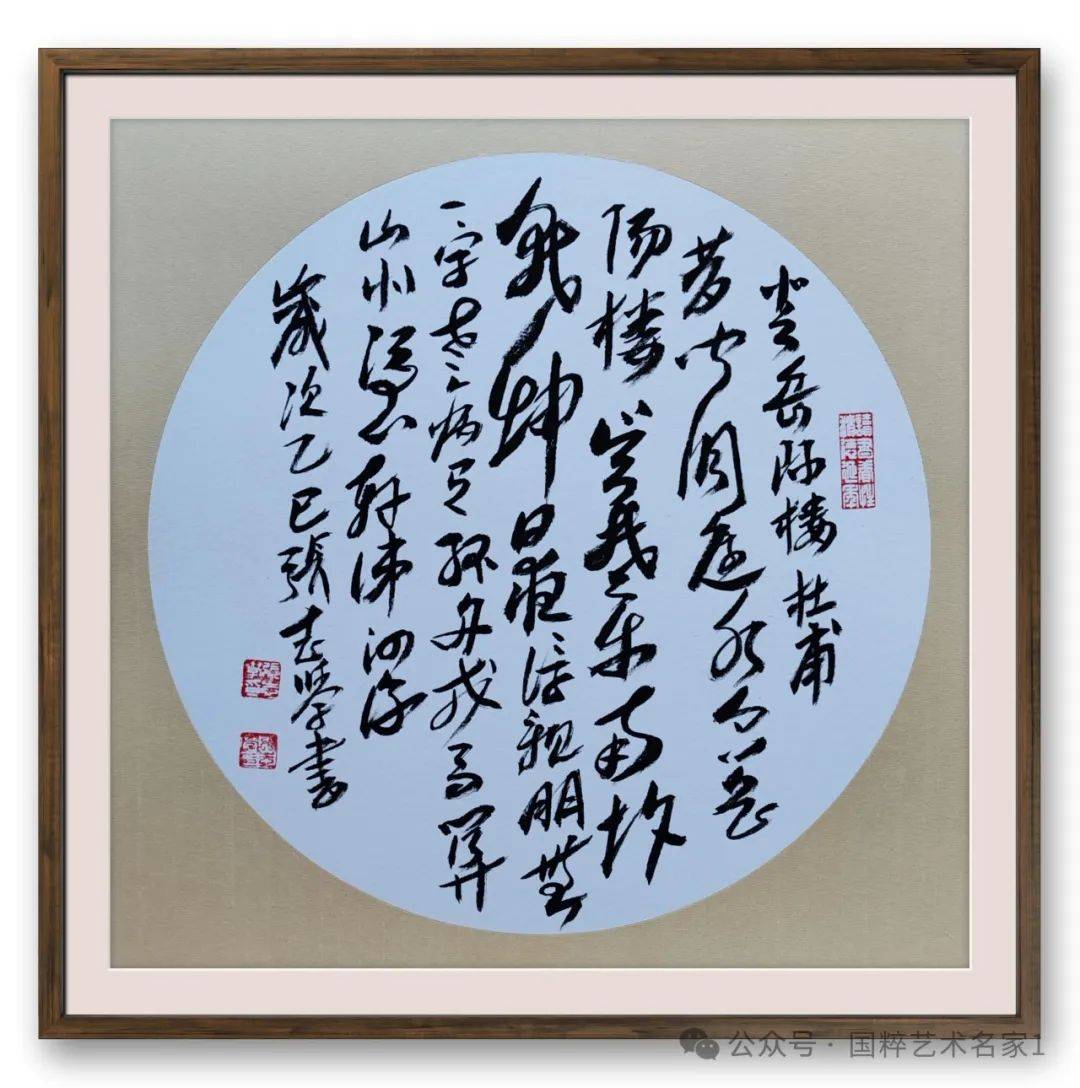 登岳阳楼 杜甫
昔闻洞庭水今上岳
阳楼吴楚东南坼
乾坤日夜浮親朋無
一字老病有孤舟戎马関
山北凭轩涕泗流
歲次乙巳張志學書
公众号·国粹艺术名家1